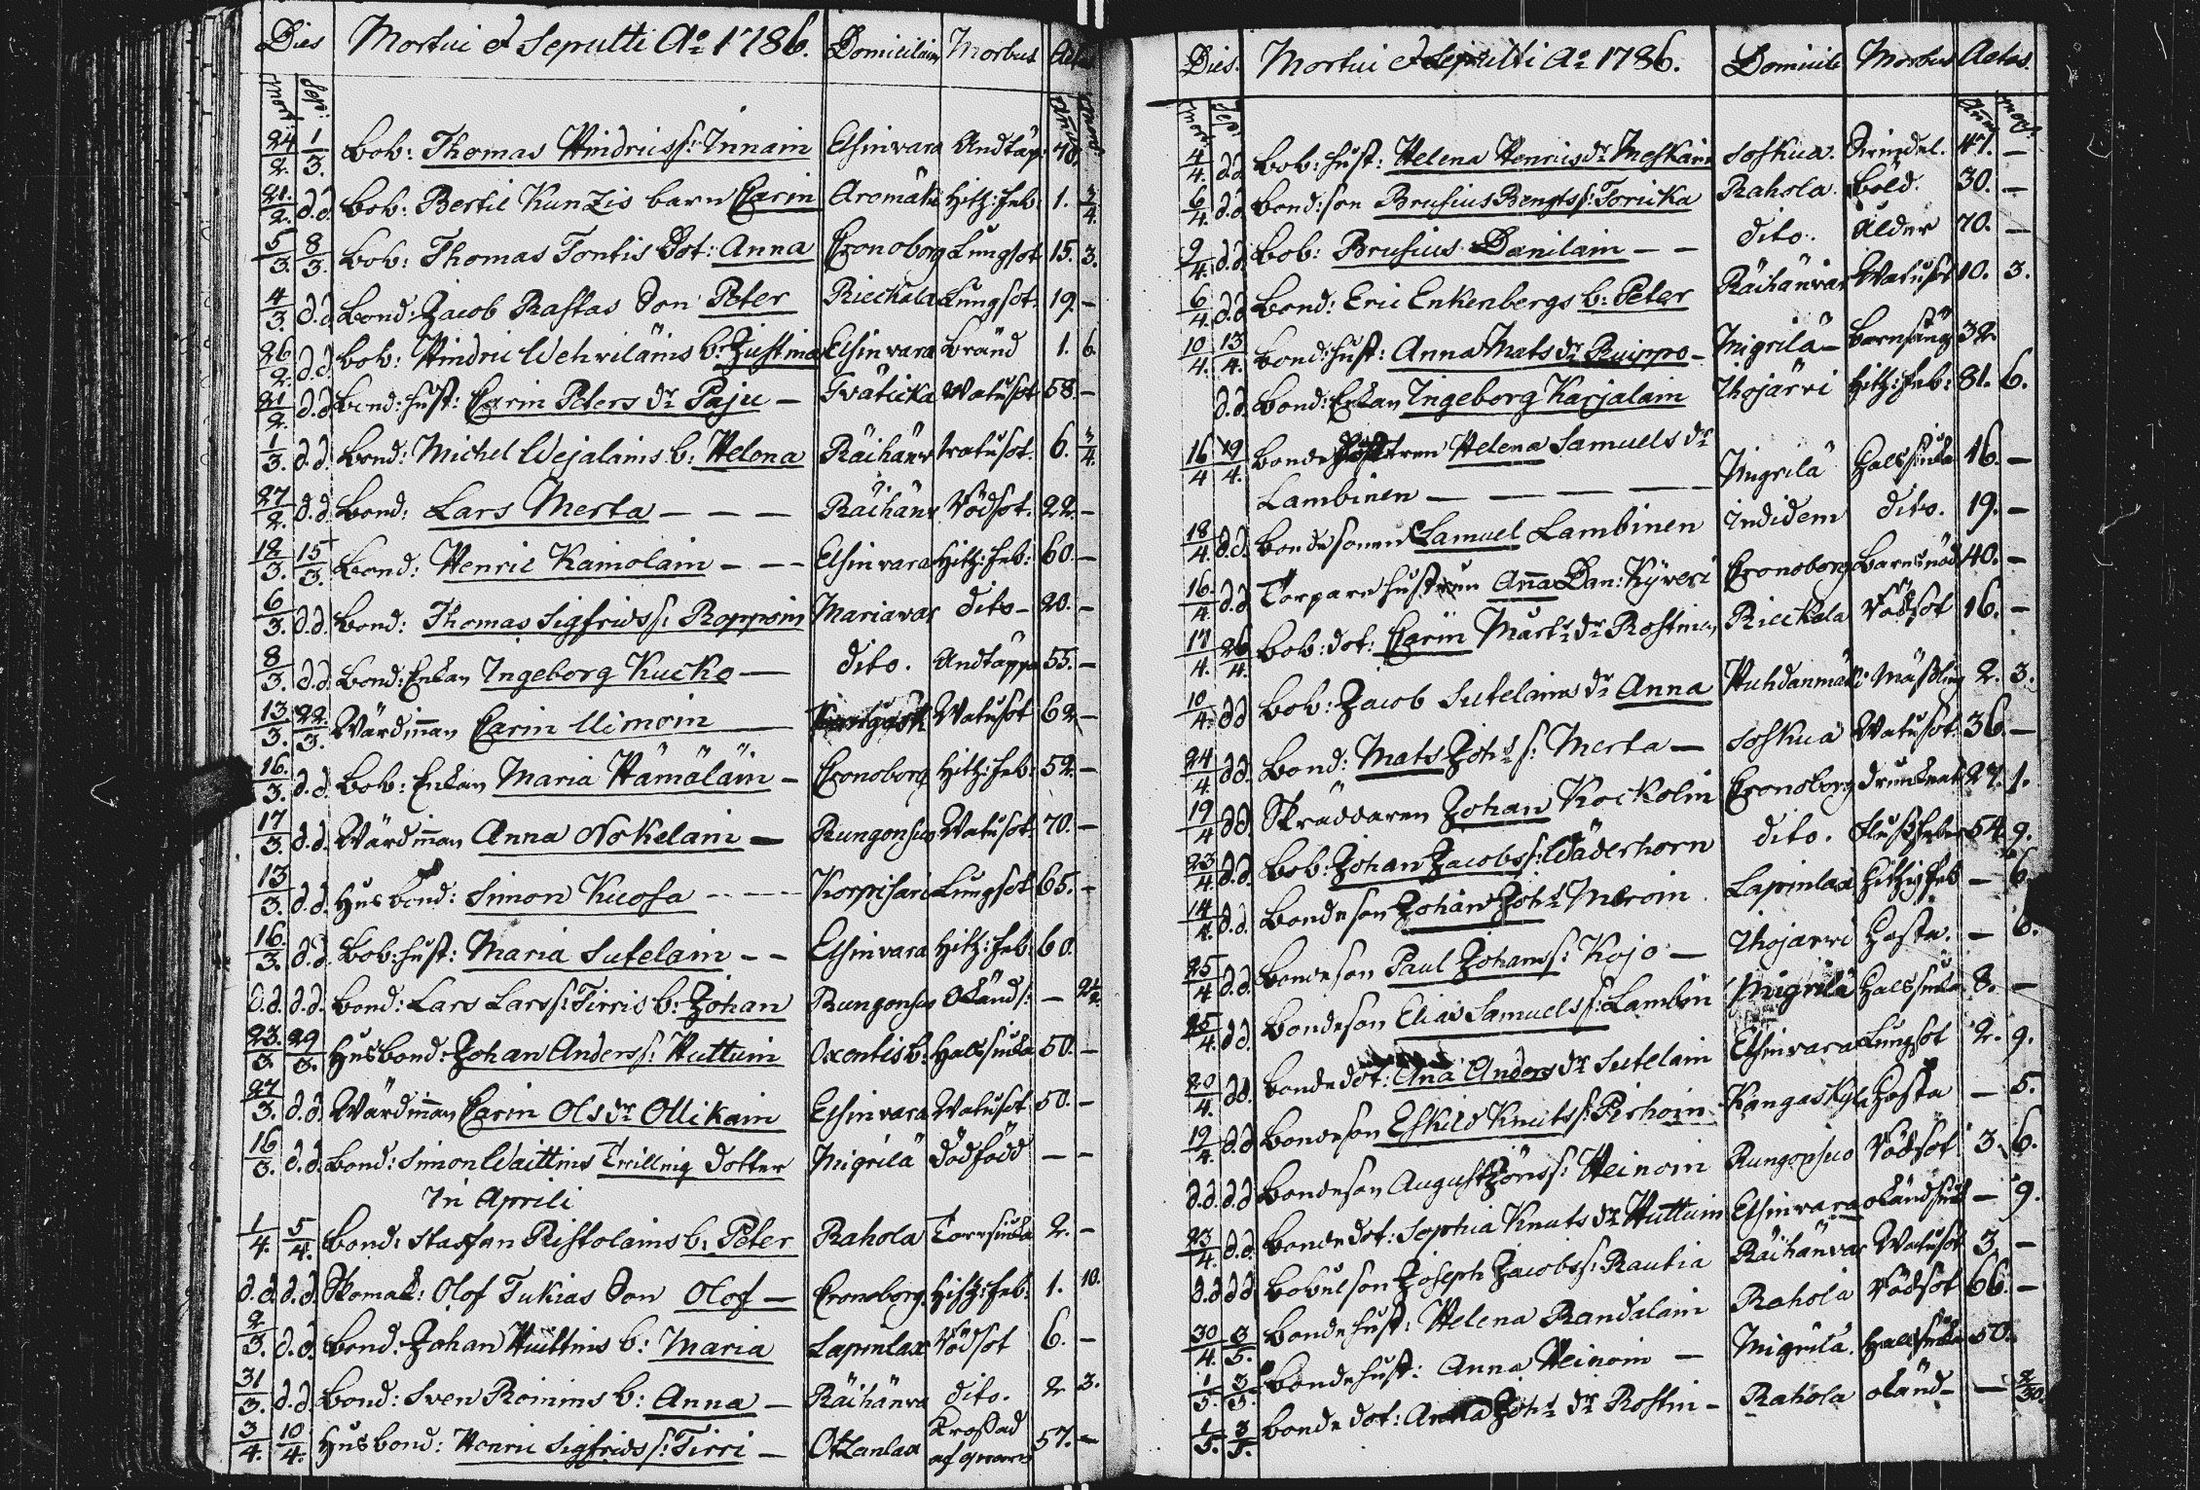 Dies Mortui et Sepulti Ao 1786. Domicilium Morbus Aetas
Mort: Sep: Ann: Mens:
24/2. 1/3. Bob: Thomas Hindricss: Innain Elsinvara Andtäp: 70.
21/2. d.d. Bob: Bertil Kunzis barn Carin Aromäki Hitz: feb: 1. 3/4.
5/3. 8/3. Bob: Thomas Tontis Dot: Anna Cronoborg Lungsot 15. 3.
4/3. d.d. Bond: Jacob Rastas Son Peter Rieckala Lungsot: 19. -
26/2. d.d. Bob: Hindric Wehviläins b: Justina Elsinvara bränd 1. 6.
21/2. d.d. bond: hust: Carin Peters dr Paju - Watusot 58 -
1/3. d.d. Bond: Michel Wejalains b: Helena Räihänv watusot. 6. 3/4.
27/2. d.d. Bond: Lars Merta - - - Räihänv Rödsot: 22. -
12/3. 15/3. Bond: Henric Kainolain - - - Elsinvara Hitz: feb: 60. -
6/3. d.d. Bond: Thomas Sigfridss: Roppoin Mariavar dito - 20. -
8/3. d.d. Bond: Enkan Ingeborg Kucko - dito. Andtäppa 55. -
13/3. 22/3. Wärdinnan Carin Uimoin Watusot 62. -
16/3. d.d. Bob: Enkan Maria Hämäläin - Cronoborg Hitz: feb: 52. -
17/3. d.d. Wärdinnan Anna Nokelain - Rungonsuo Watusot. 70. -
13/3. d.d. Husbond: Simon Kuosa - - - Korpisari Lungsot 65. -
16/3. d.d. Bob: hust: Maria Sutelain - - Elsinvara Hitz: feb: 60.
d.d. d.d. Bond: Lars Larss: Tirris b: Johan Rungonsuo Okänd s: -
23/3. 29/3. Husbond: Johan Anderss: Huttuin Oxentisb: Halssiuka 50. -
27/3. d.d. Wärdinnan Carin Olsdr Ollikain Elsinvara Watusot 50. -
16/3. d.d. Bond: Simon Waittins Trilling Dotter Migrilä Dödfödd - -
In Aprili
1/4. 5/4. Bond: Staffan Ristolains b: Peter Rahola Torrsiuka 2. -
d.d. d.d. Skomak: Olof Tukias Son Olof - Cronoborg. Hitz: feb: 1. 10.
2/3. d.d. Bond: Johan Huittins b: Maria Lapinlax Rödsot 6. -
31/3. d.d. Bond: Sven Roinins b: Anna - Räihänva dito. 2. 3.
3/4. 10/4. Husbond: Henric Sigfridss: Tirri - Otzanlax Krossad 57. -
af qvarn
Dies. Mortui et Sepulti Ao 1786. Domicili Morbus Aetas.
Mort Sep: Ann: Mens:
4/4. d.d. Bob: hust: Helena Henricsdr Meskain Soskua. 47. -
6/4. d.d. Bond: son Brusius Bengtss: Toricka Rahola. Böld. 30. -
9/4. d.d. Bob: Brusius Danilain - - dito. Ålder 70. -
6/4. d.d. Bond: Eric Enkenbergs b: Peter Räihänvar Watusot 10. 3.
10/4. 13/4. Bond: hust: Anna Mats dr Ruippo - Migrilä - Barnsäng 32.
d.d. Bond: Enkan Ingeborg Karjalain Ihojärvi Hitz: feb: 81. 6.
16/4 19/4. Bonde Helena Samuels dr
Lambinen - - - - Migrilä Halssiuka 16. -
18/4. d.d. Bondesonen Samuel Lambinen Indidem dito. 19. -
16/4. d.d. Torpare hustrun Anna Dan: Kyveri Cronoborg Barnsnöd 40. -
17/4. 26/4. Bob: dot: Carin Mårt: dr Rostin Rieckala Rödsot 16. -
10/4. dd Bob: Jacob Sutelains dr Anna Huhdanmäki Mäßling 2. 3.
24/4. dd. Bond: Mats Johs s: Merta - Soskua Watusot: 36. -
19/4. dd. Skräddaren Johan Kockolin Cronoborg Drunknat 27. 1.
23/4. d.d. Bob: Johan Jacobss: Wäderhorn dito. Flussfeber 54. 9.
14/4. d.d. Bondeson Johan Johs Meroin Lapinlax Hitzig feb - 6.
25/4. d.d. Bondeson Paul Johanss: Kojo - Ihojarvi Hosta. - 6.
25/4. dd. Bondeson Elias Samuelss: Lambin Migrilä Halssiuka 8. -
20/4. dd. Bondedot: Anna Anders dr Sutelain Elsinvara Lungsot 2. 9.
19/4. d.d. Bondeson Eskild Knutss: Pirhoin Kangaskyl Hosta - 5.
d.d. d.d. Bondeson August Jönss: Heinoin Rungonsuo Rödsot 3. 6.
23/4. d.d. Bondedot: Sophia Knuts dr Huttuin Elsinvara okändsiuk - 9.
d.d. d.d. Bobulson Joseph Jacobss: Rautia Räihänvar Watusot 3. -
30/4. 3/5. Bonde hust: Helena Randalain Rahola Rödsot 66. -
1/5. 3/5. Bondehust: Anna Heinoin - Migrilä. Halssiuka 50.
1/5. 3/5. Bondedot: Anna Johs dr Rostin - Rahola okänd - - 2/30.